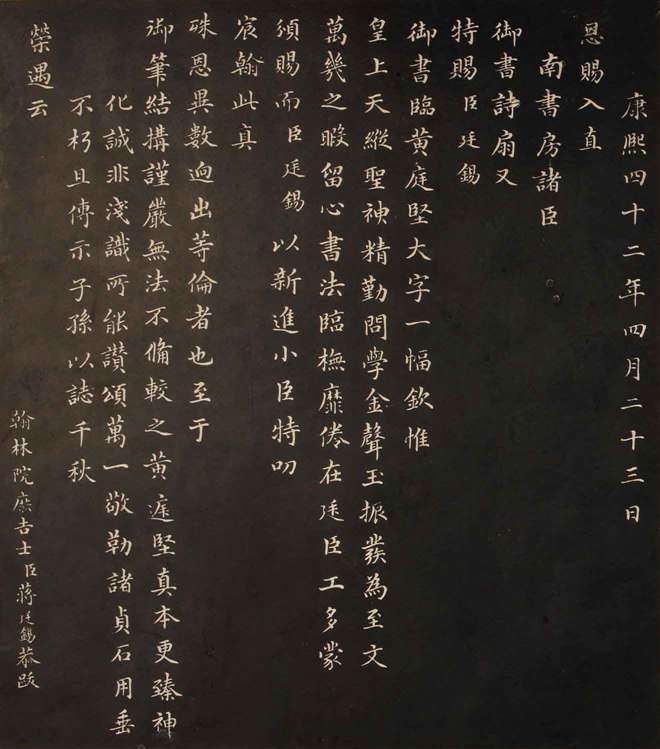 康熙四十二年四月二十三日
恩賜入直
南書房諸臣
御書詩扇又
特賜臣廷錫
御書臨黄庭堅大字一幅欽惟
皇上天縱聖神精勤問學金聲玉振發為至文
萬幾之暇留心書法臨橅靡倦在廷臣工多蒙
頒賜而臣廷錫以新進小臣特叨
宸翰此真
殊恩異數迥出等倫者也至于
御筆結搆謹嚴無法不備較之黄庭堅真本更臻神
化誠非淺識所能讚頌萬一敬勒諸貞石用垂
不朽且傳示子孫以誌千秋
榮遇云
翰林院庶吉士臣蔣廷錫恭跋